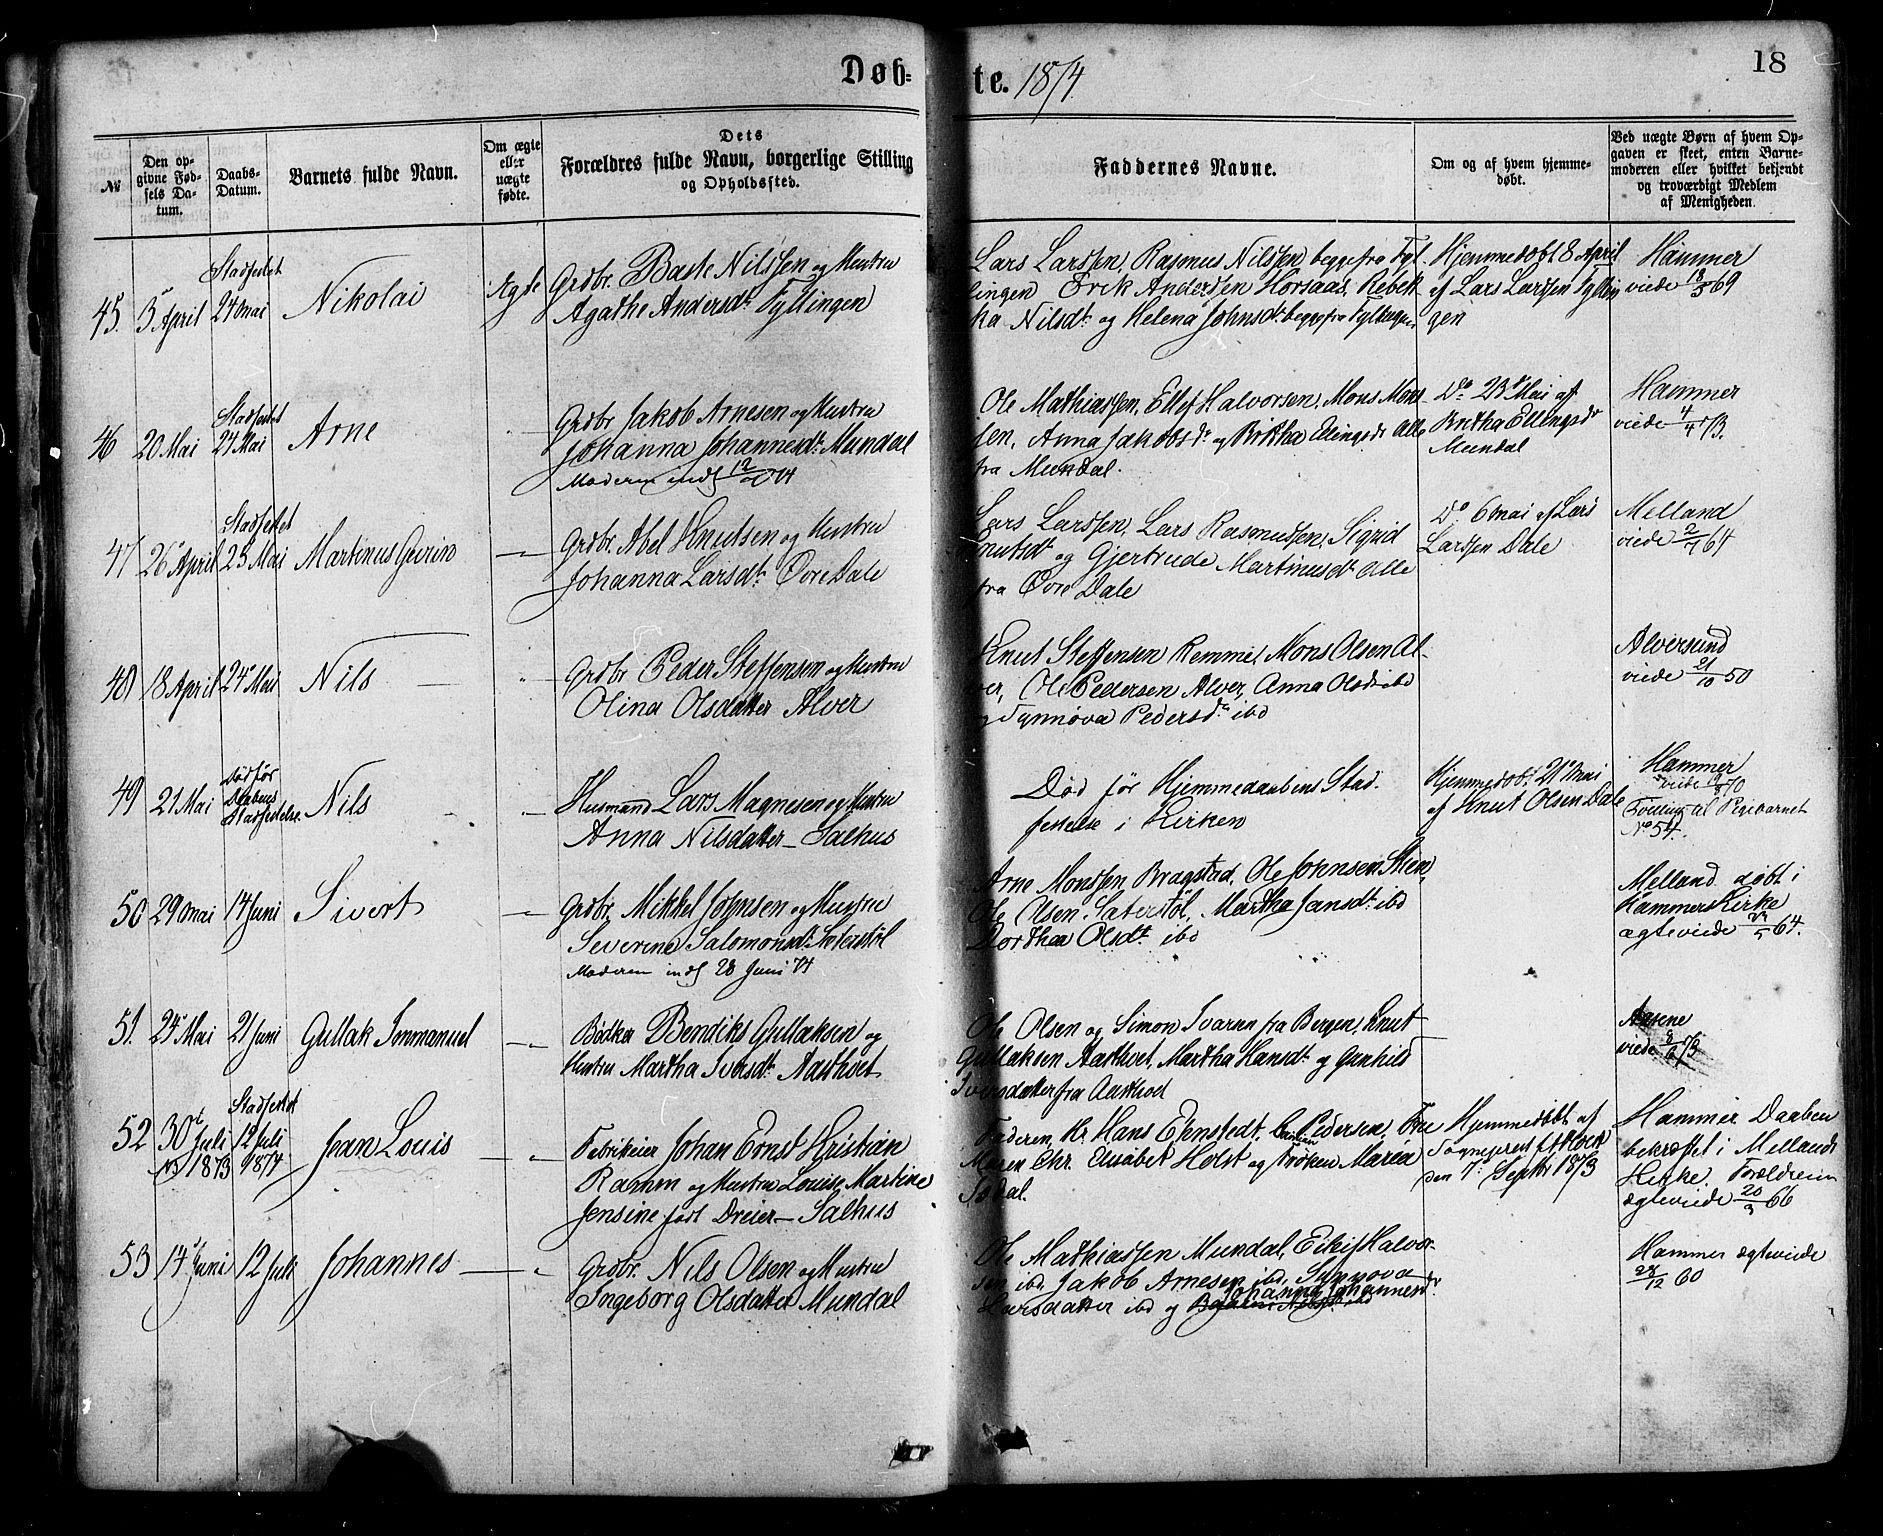 Døb-
te. 1874
18
№
Den op-
givne Fød-
sels Da-
tum.
Daabs-
Datum.
Barnets fulde Navn.
Om ægte
eller
uægte
fødte.
Dets
Forældres fulde Navn, borgerlige Stilling
og Opholdssted.
Faddernes Navne.
Om og af hvem hjemme-
døbt.
Ved uægte Børn af hvem Op-
gaven er skeet, enten Barne-
moderen eller hvilket bekjendt
og troværdigt Medlem
af Menigheden.
45. 5 April
Stadfestet
24 Mai
Nikolai
Ægte
Grdbr. Baste Nilssen og Hustru
Agathe Andersdt. Fyllingen
Lars Larssen, Rasmus Nilssen begge fra Fyl
lingen Erik Anderssen Horsaas, Rebek
ka Nilsdt. og Helena Johnsdt. begge fra Fyllingen
Hjemmedøbt 8 April
af Lars Larssen Fyllin
gen
Hammer
viede 13/5 69
46 20 Mai
Stadfestet
24 Mai
Arne
Grdbr. Jakob Arnesen og Hustru
Johanna Johannesdt. Mundal
Moderen indl 12/7 74
Ole Mathiassen, Ellef Halvorsen, Mons Mons
sen, Anna Jakobsdr. og Britha Ellingsdr Alle
fra Mundal.
Do 23 Mai af
Britha Ellingsdr
Mundal
Hammer
viede 4/4 73.
47 26 April
Stadfestet
25 Mai
Martinus Gerien
Grdbr. Abel Knutsen og Hustru
Johanna Larsdt. Øvre Dale
Lars Larssen, Lars Rasmussen, Sigrid
Knutsdt. og Gjertrude Martinusdt. Alle
fra Øvre Dale
Do 6 Mai af Lars
Larssen Dale
Melland
viede 2/7 64
48 18 April 24 Mai Nils
Grdbr Peder Steffensen og Hustru
Olina Olsdatter Alver
Knut Steffensen Remmel Mons Olsen Al-
ver, Ole Pedersen Alver, Anna Olsdr ibd
og Synnøva Pedersdr ibd
Alversund
viede 21/10 50
49 21 Mai
Død før
Daabens
Stadfestelse.
Nils
Husmand Lars Magnesen og Hustru
Anna Nilsdatter - Salhus
Død før Hjemmedaabens Stad.
festelse i Kirken
Hjemmedøbt 21 Mai
af Knut Olsen Dale
Hammer
viede 19/8 70
Tvilling til Pigebarnet
No 54.
50 29 Mai 14 Juni Sivert
Grdbr. Mikkel Johnsen og Hustru
Severine Salomonsdt. Sæterstøl
Moderen indl 28 Juni 74
Arne Monssen Bragstad, Ole Johnsen Steen,
Ole Olsen Sæterstøl, Martha Jansdt. ibd
Dorthea Olsdt. ibd
Melland døbt i
Hammers Kirke
ægteviede 29/5 64.
51. 24 Mai 21 Juni Gullak Immanuel
Bødker Bendiks Gullaksen og
Hustru Martha Iversdt. Aasthvet
Ole Olsen og Simon Ivarsen fra Bergen, Knut
Gullaksen Aasthvet, Martha Hansdt. og Gunhild
Iversdatter fra Aasthvet
Aasene
viede 8/6 73
52 30t
Juli
1873
Stadfestet
12 Juli
1874
Jean Louis
Fabrikeier Johan Ernst Kristian
Ramm og Hustru Louise Martine
Jensine født Dreier - Salhus
Faderen, Hr. Hans Ehnstedt, Pedersen, Fru
Maren Chr. Elisabet Holst og Frøken Maria
Sædal.
Hjemmedøbt af
Sognepræst
den 7 Septbr 1873
Hammer Daaben
bekræftet i Mellands
Kirke Forældrene
ægteviede 20/9 66
53 14 Juni 12 Juli Johannes
Grdbr. Nils Olsen og Hustru
Ingeborg Olsdatter Mundal
Ole Mathiassen Mundal, Eilif Halvor-
sen ibd, Jakob Arnesen ibd, Synnøva
Larsdatter ibd og Johanna Johannesdr.
Hammer ægteviede
28/12 60